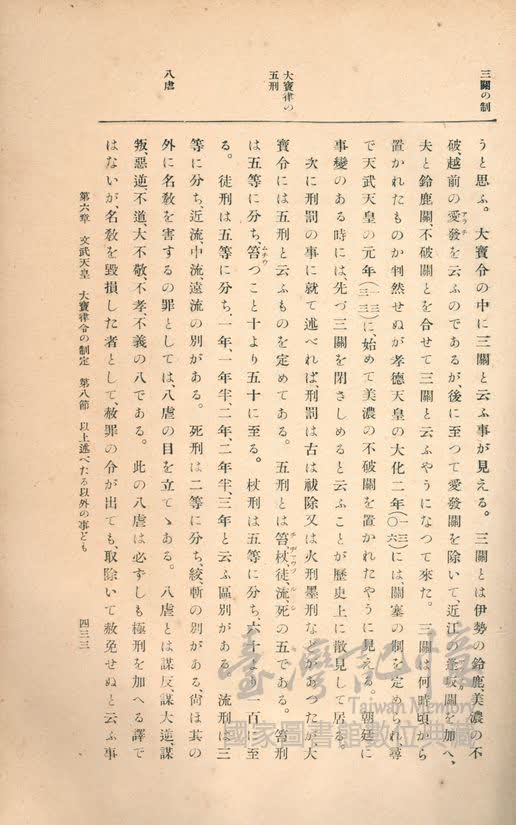 三關の制
大寶律の
五刑
八虐
うと思ふ。大寶令の中に三關と云ふ事が見える。三關とは伊勢の鈴鹿、美濃の不
破、越前の愛發を云ふのであるが、後に至つて愛發關を除いて、近江の逢坂關を加へ、
アラチ
夫と鈴鹿關不破關とを合せて三關と云ふやうになつて來た。三關は何時頃から
置かれたものか判然せぬが孝德天皇の大化二年(一三〇六)には、關塞の制を定められ、尋
で天武天皇の元年(一三三二)に、始めて美濃の不破關を置かれたやうに見える。朝廷に
事變のある時には、先づ三關を閉さしめると云ふことが歷史上に散見して居る。
次に刑罰の事に就て述べれば、刑罰は古は祓除又は火刑墨刑などがあつたが、大
寶令には五刑と云ふものを定めてある。五刑とは笞、杖、徒、流、死の五である。笞刑
は五等に分ち笞つこと十より五十に至る。杖刑は五等に分ち六十より一百に至
ムチウ
る。徒刑は五等に分ち、一年、一年半、二年、二年半、三年と云ふ區別がある。流刑は三
等に分ち、近流、中流、遠流の別がある。死刑は二等に分ち、絞、斬の別がある、尙は其の
外に名教を害するの罪としては、八虐の目を立てゝある。八虐とは謀反、謀大逆、謀
叛、惡逆、不道、大不敬、不孝、不義の八である。此の八虐は必ずしも極刑を加へる譯で
はないが名教を毀損した者として、赦罪の令が出ても、取除いて赦免せぬと云ふ事
第六章 文武天皇 大寶律令の制定 第八節 以上述べたる以外の事ども
四三三
臺灣記憶
Taiwan Memory
國家圖書館數位典藏